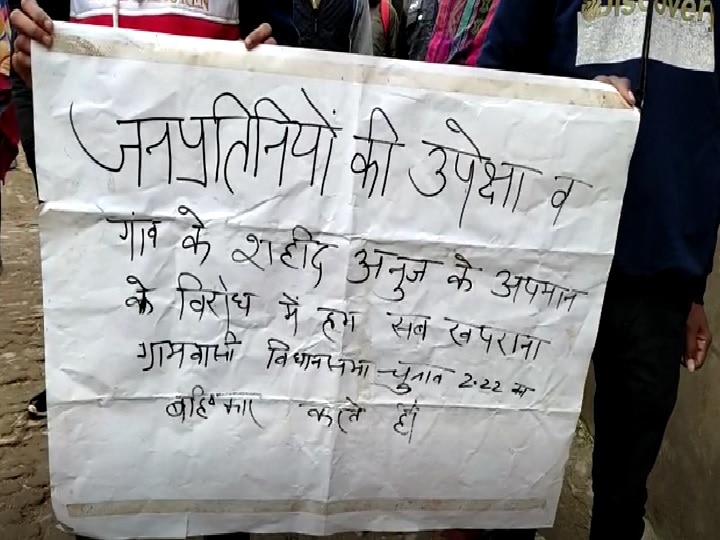 Discovery
जनप्रतिनियों की उपेक्षा व
गांव के शहीद अनुज के अपमान
के विरोध में हम सब खपराना
ग्रामवासी विधानसभा चुनाव 2.22 का
बहिष्कार करते हैं